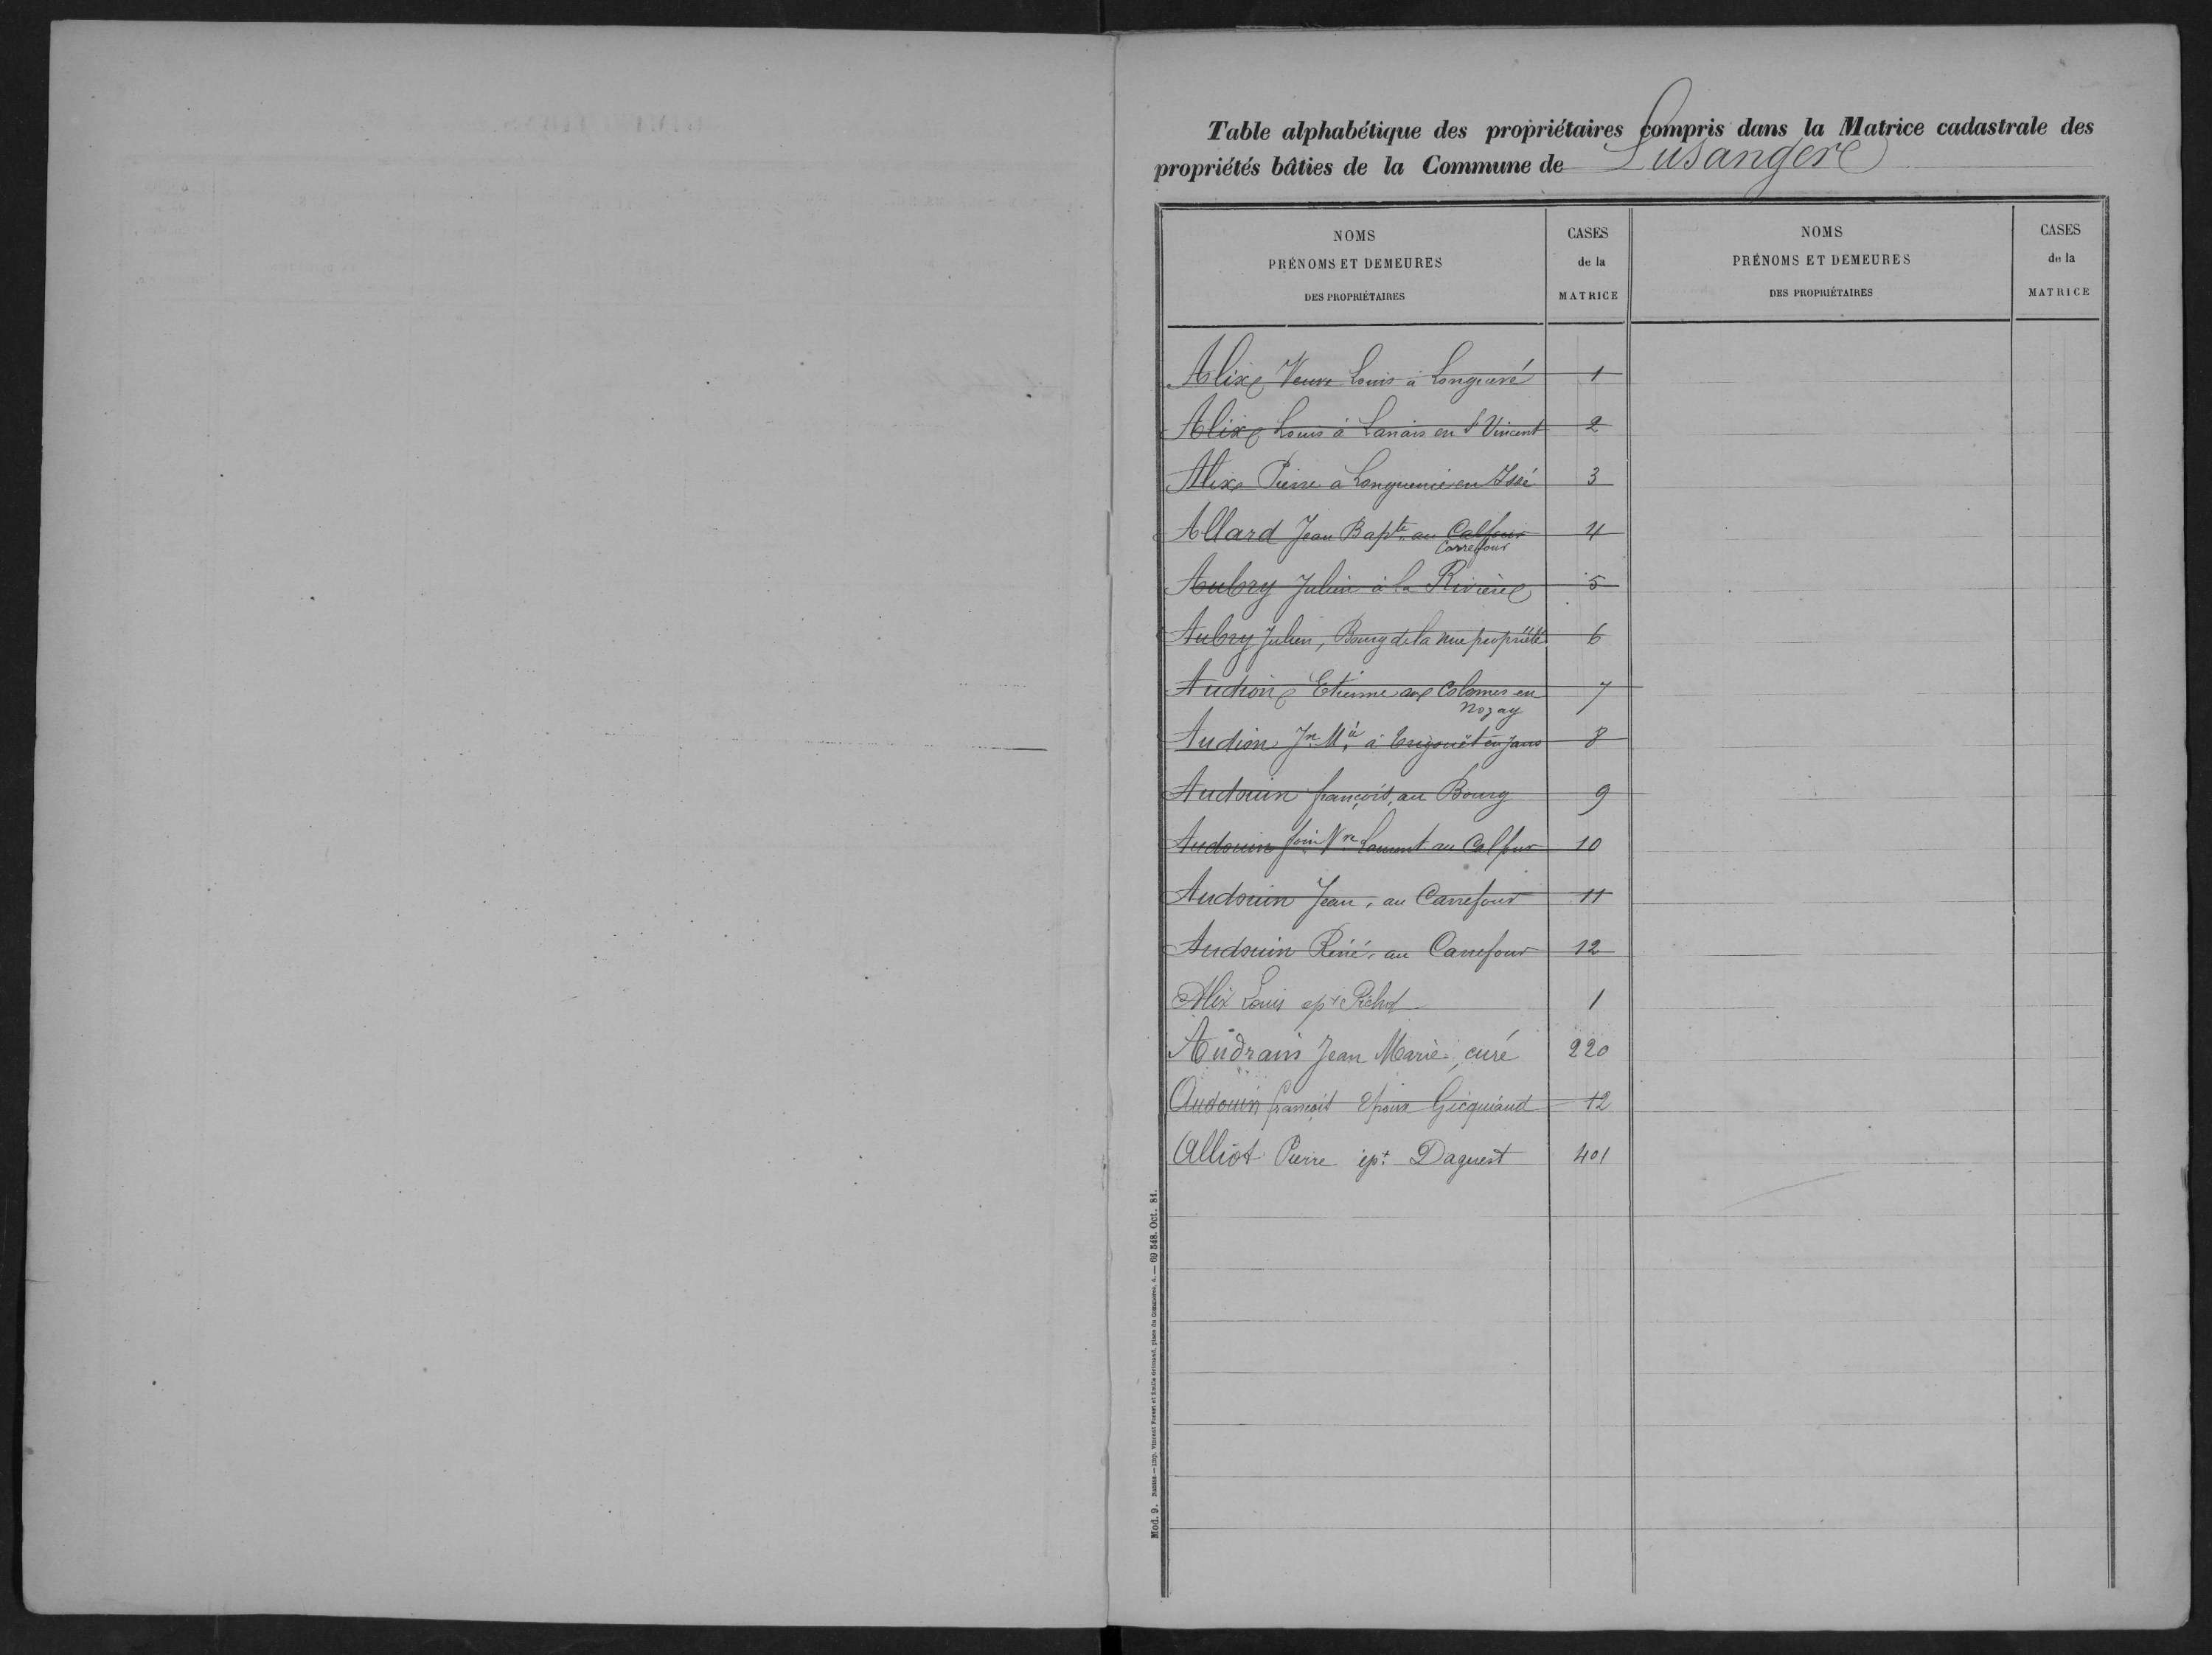 Table alphabétique des propriétaires compris dans la Matrice cadastrale des
propriétés bâties de la Commune de Lusanger
NOMS PRÉNOMS ET DEMEURES DES PROPRIÉTAIRES
CASES de la MATRICE
NOMS PRÉNOMS ET DEMEURES DES PROPRIÉTAIRES
CASES de la MATRICE
Alix Veuve Louis à 1
Alix Louis à Lanais en St Vincent 2
Alix Pierre à en Issé 3
Allard Jean Bapte au Calfour 4
Carrefour
Aubry Julien à la Rivière 5
Aubry Julien, Bourg de la nue propriété 6
Audion Etienne aux Colomes en 7
Nozay
Audion Jn Mie à en Jans 8
Audouin françois, au Bourg 9
Audouin Vve Laurent au Calfour 10
Audouin Jean, au Carrefour 11
Audouin Réné, au Carrefour 12
Alix Louis ept Pichot 1
Audrain Jean Marie, curé 220
Audouin françois Epoux Gicquiaud 12
Alliot Pierre ept Daguest 401
Mod. 9. NANTES — Imp. Vincent Forest et Emile Grimaud, place du Commerce, 4. — 69 548. Oct. 81.